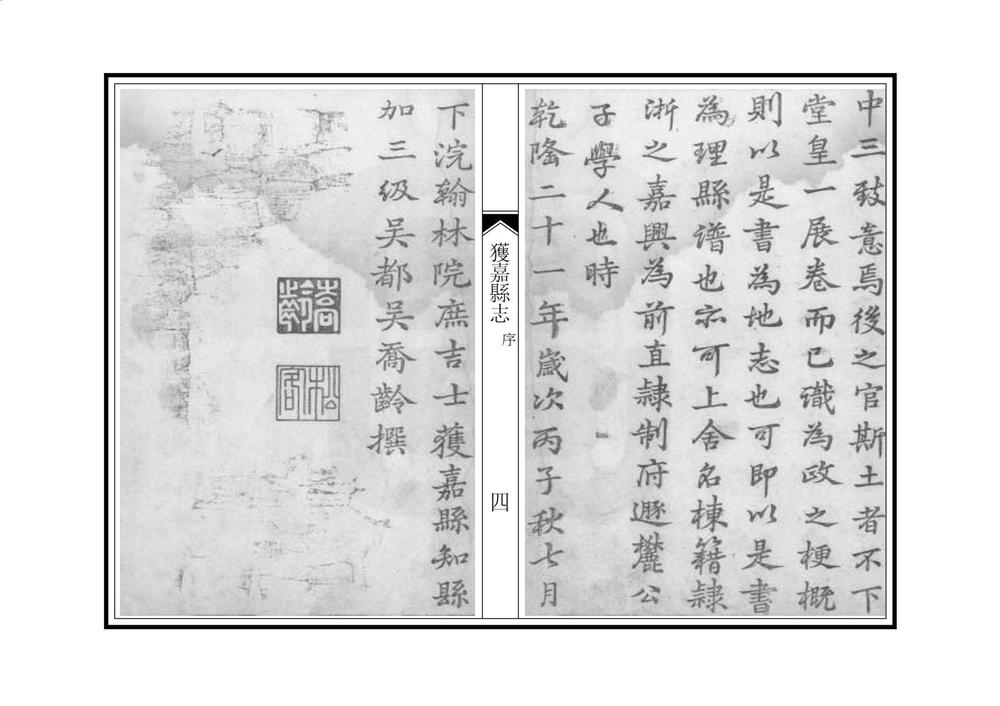 中三致意焉後之官斯土者不下
堂皇一展卷而已識為政之梗概
則以是書為地志也可即以是書
為理縣譜也亦可上舍名棟籍隷
浙之嘉興為前直隷制府遯麓公
子學人也時
乾隆二十一年歲次丙子秋七月
獲嘉縣志
序
四
下浣翰林院庶吉士獲嘉縣知縣
加三級吳都吳喬齡撰
喬齡
松